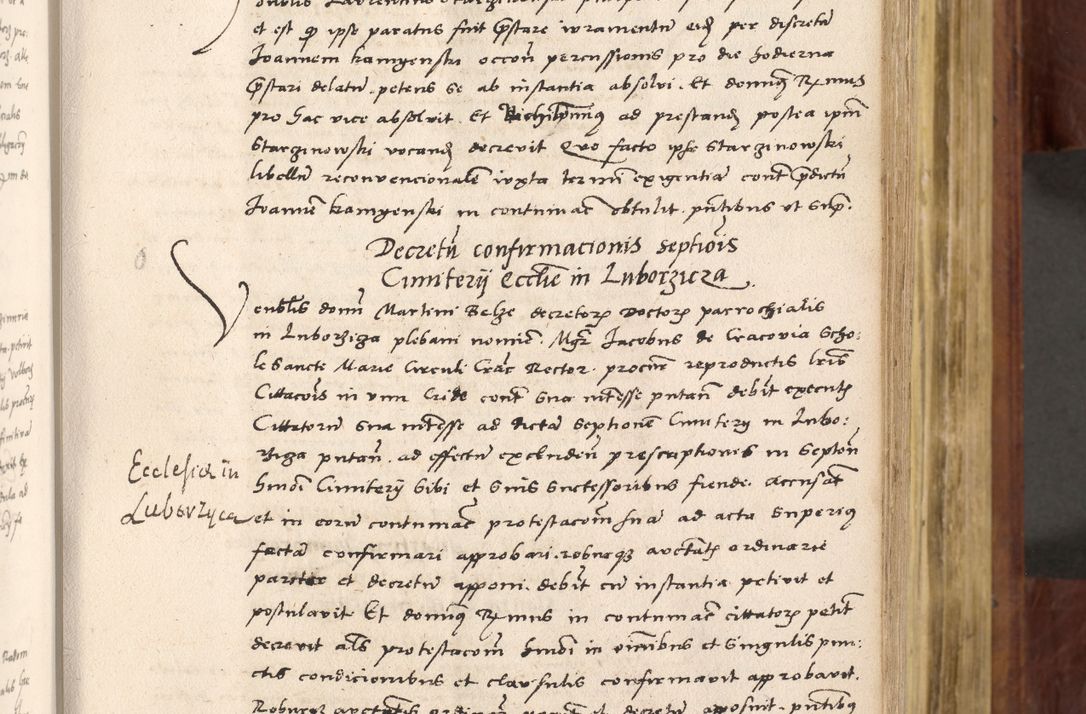 et est q ipse paratus fuit pstare iuramentu eid per discretu
Joannem kamyenski occon percussionis pro die hodierna
pstari delatu . petens se ab instantia absolvi . Et dominq Rmus
pro hac vice absolvit . Et ad prestand postea ipm
Starzinowski vocand decrevit Quo facto ipse Starzinowski
libellu reconvencionale iuxta termi exigentia cont pdictu
Joanne kamyenski in contumac obtulit . pntibus ut sup .
Decretu confirmacionis septiois
Cimiterij Ecclie in Luborzicza
Venblis domi Martini Belze decretor Doctor parrochialis
in Luborziga plebani nomie . Mgr Jacobus de Cracovia Scho:
le Sancte Marie Circuli Crac Rector . procur reproductis lris
Cittacois in vim Cride cont sua intesse putan debit executis
Cittatoru sua intesse ad dicta septione Cimitery in Lubo:
rziga putan . ad effectu excludend prescriptionis in septon
hmoi Cimiterij sibi et suis successoribus fiende . accusat
Ecclesia in
Luborzyca
et in eoru contumac protestacom sua ad acta superiq
facta confirmari approbari . roburq auctatis ordinarie
pariter et decretu apponi . debit cu instantia petivit et
postulavit Et dominq Rmus in contumac cittator petit
decrevit als protestacom hmoi in oimbus et singulis pun:
ctis condicionibus et clausulis confirmavit approbavit .